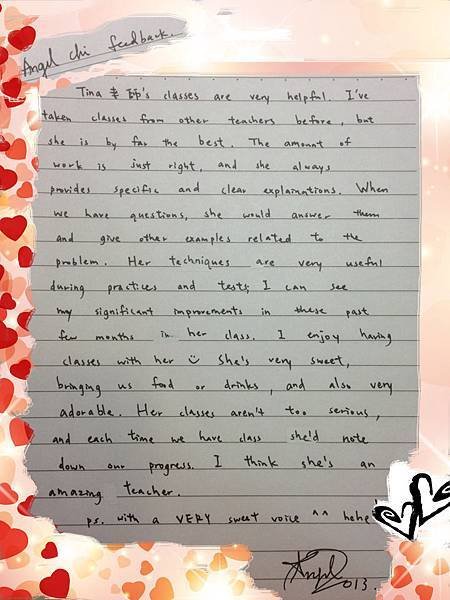 Angel chi feedback.
Tina 老師's classes are very helpful. I've
taken classes from other teachers before, but
she is by far the best. The amount of
work is just right, and she always
provides specific and clear explainations. When
we have questions, she would answer them
and give other examples related to the
problem. Her techniques are very useful
during practices and tests; I can see
my significant improvements in these past
few months in her class. I enjoy having
classes with her ☺ She's very sweet,
bringing us food or drinks, and also very
adorable. Her classes aren't too serious,
and each time we have class she'd note
down our progress. I think she's an
amazing teacher.
ps. with a VERY sweet voice ^^ hehe
Angel 2013.